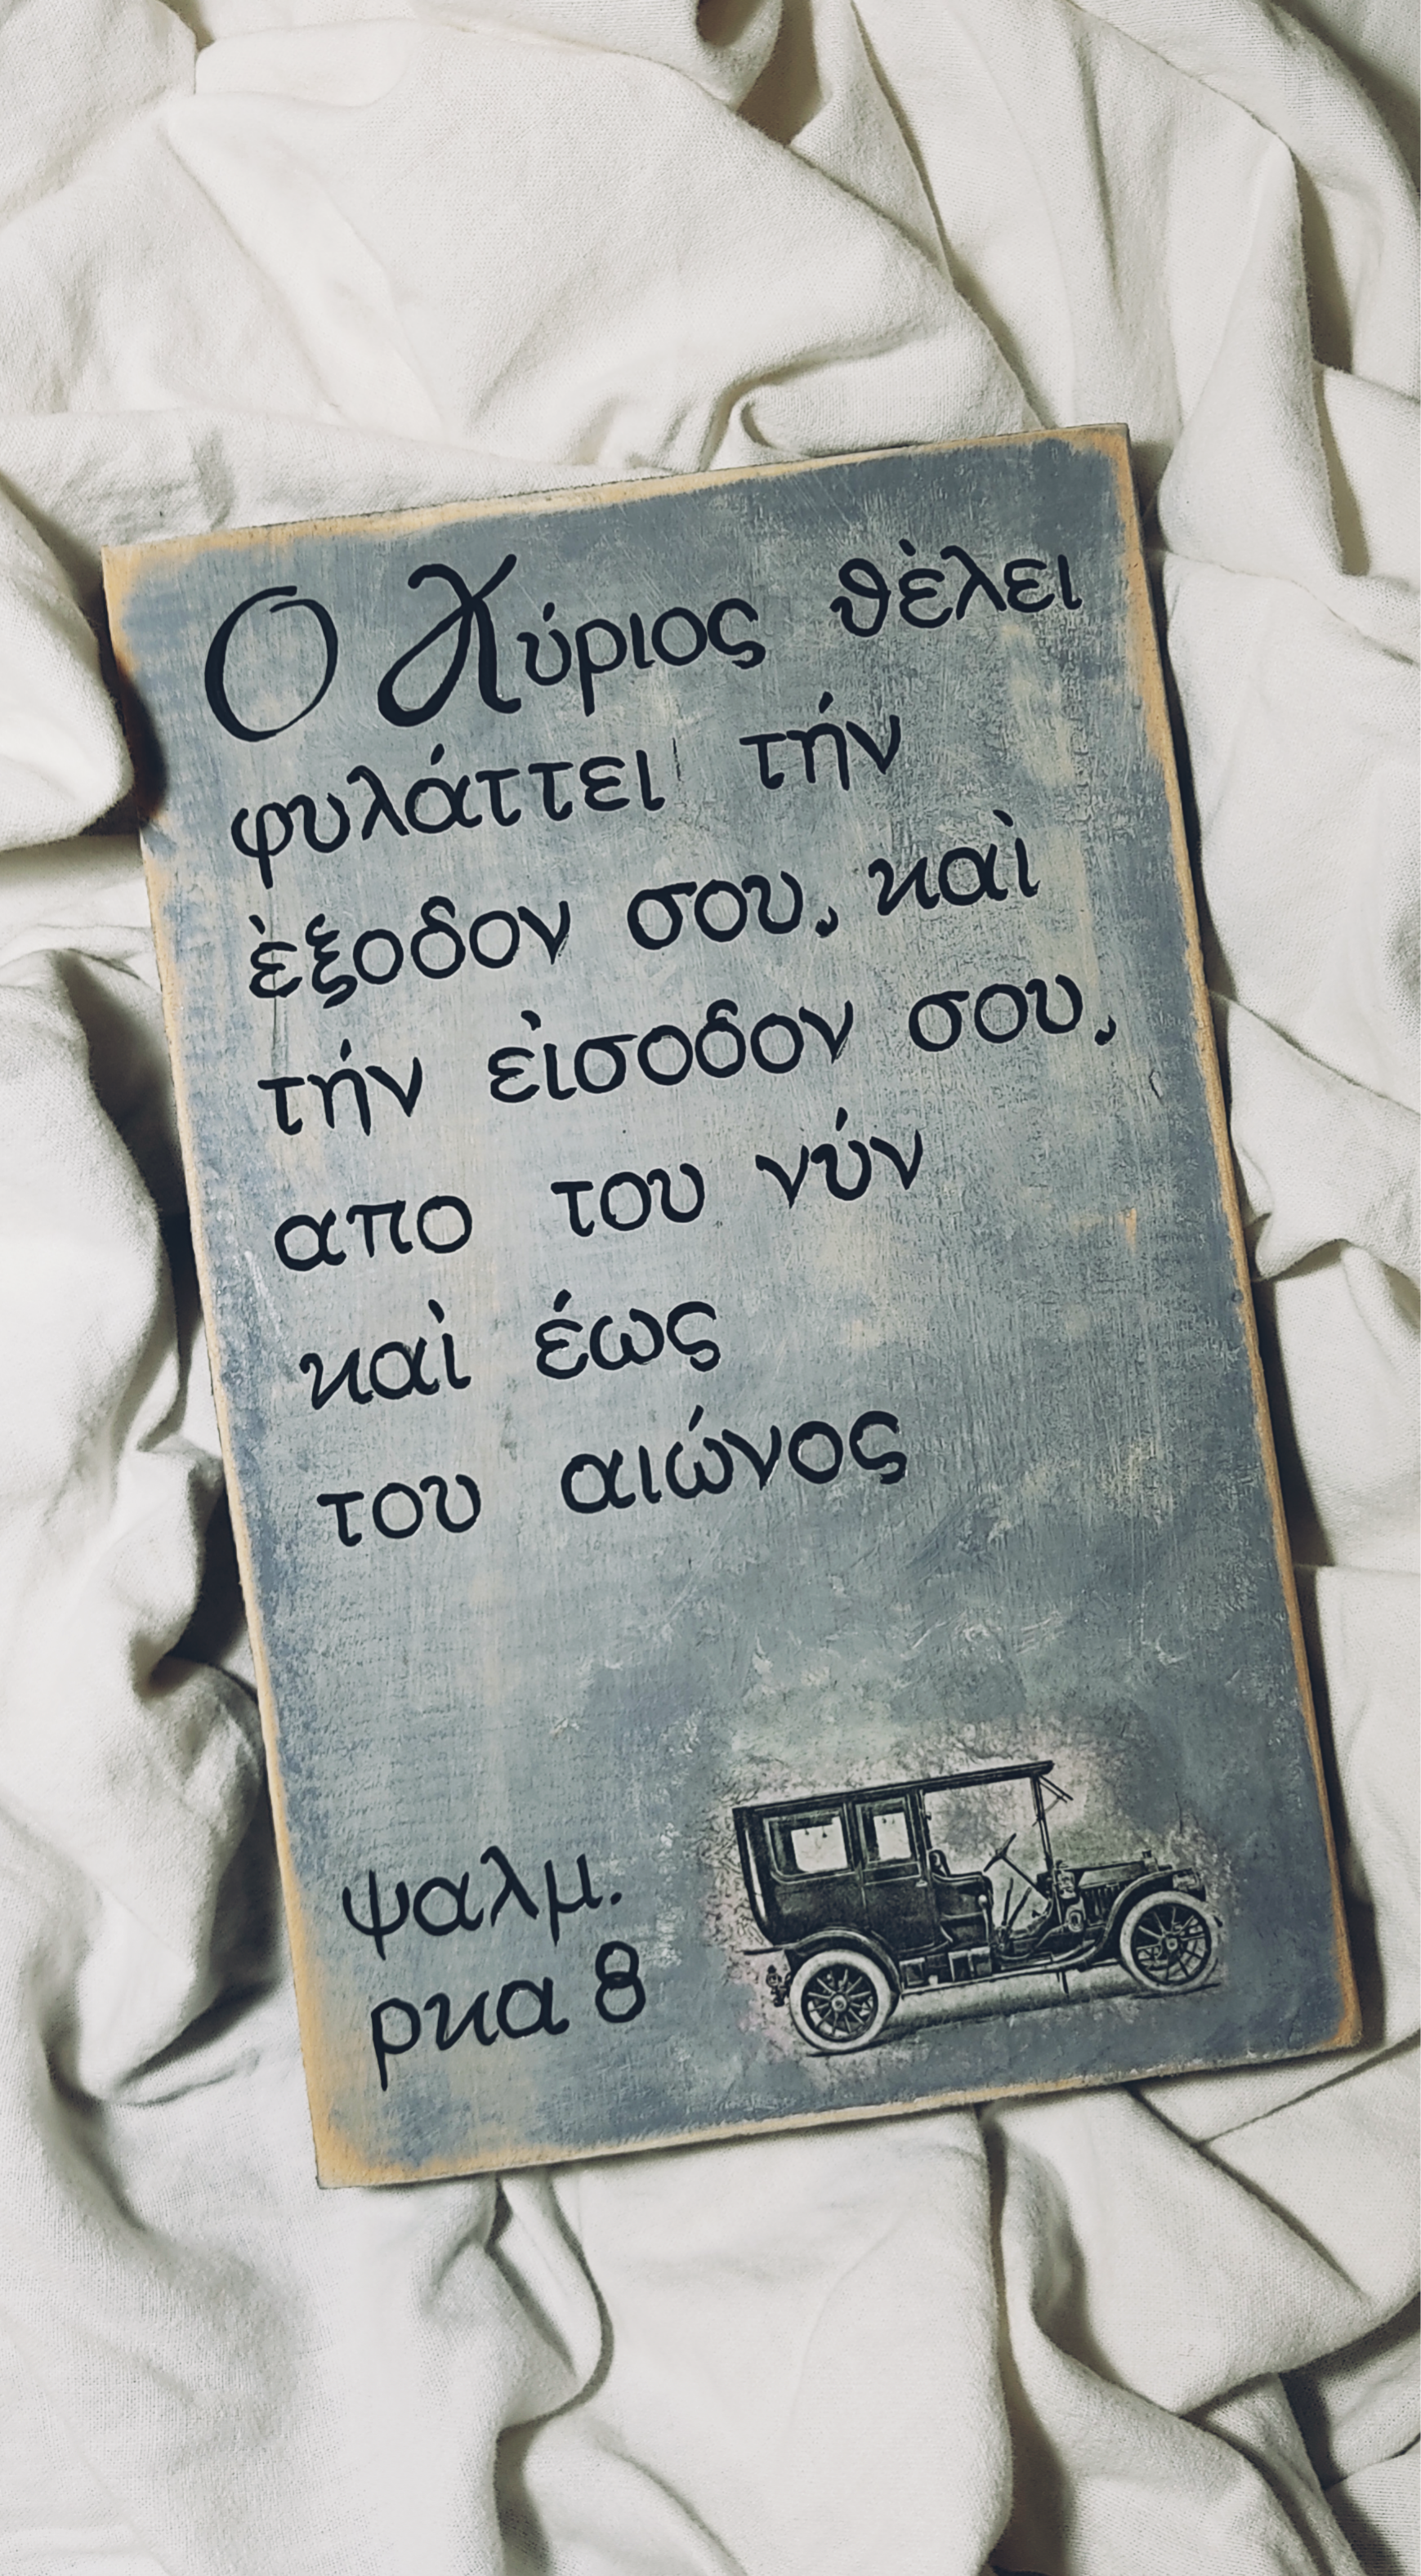 Ο Κύριος θὲλει
φυλάττει τήν
ὲξοδον σου, καὶ
τήν εὶσοδον σου,
απο του νύν
καὶ έως
του αιώνος
ψαλμ.
ρκα 8